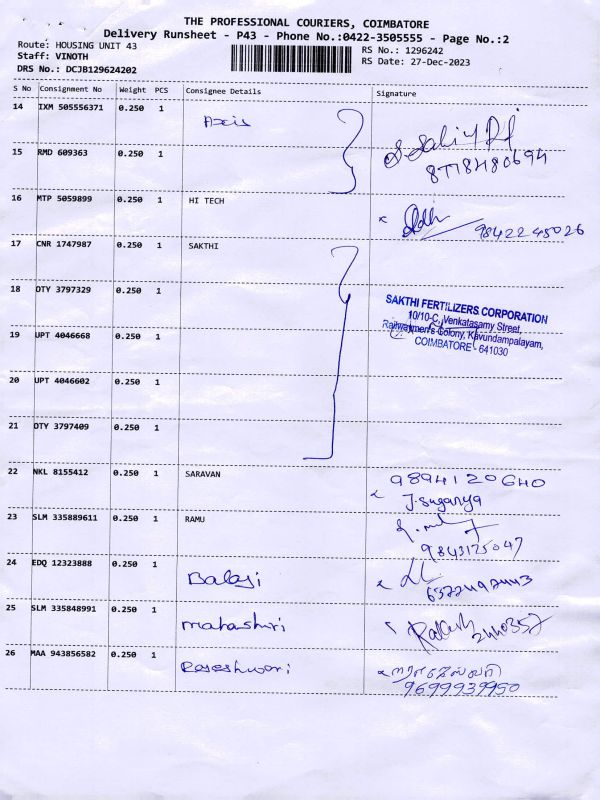 THE PROFESSIONAL COURIERS, COIMBATORE
Delivery Runsheet - P43 - Phone No.:0422-3505555 - Page No.:2
Route: HOUSING UNIT 43
RS No.: 1296242
Staff: VINOTH
RS Date: 27-Dec-2023
DRS No.: DCJB129624202
S No Consignment No Weight PCS Consignee Details Signature
14 IXM 505556371 0.250 1 Axis
15 RMD 609363 0.250 1 8778480694
16 MTP 5059899 0.250 1 HI TECH 9842245026
17 CNR 1747987 0.250 1 SAKTHI
18 OTY 3797329 0.250 1
SAKTHI FERTILIZERS CORPORATION
10/10-C, Venkatasamy Street,
19 UPT 4046668 0.250 1 Railwaymen's Colony, Kavundampalayam,
COIMBATORE - 641030
20 UPT 4046602 0.250 1
21 OTY 3797409 0.250 1
22 NKL 8155412 0.250 1 SARAVAN 9894120640
J. Suganya
23 SLM 335889611 0.250 1 RAMU
9843125047
24 EDQ 12323888 0.250 1 Balaji
25 SLM 335848991 0.250 1 Mahashri Rakesh 2440357
26 MAA 943856582 0.250 1 Rajeshwari
9699939950